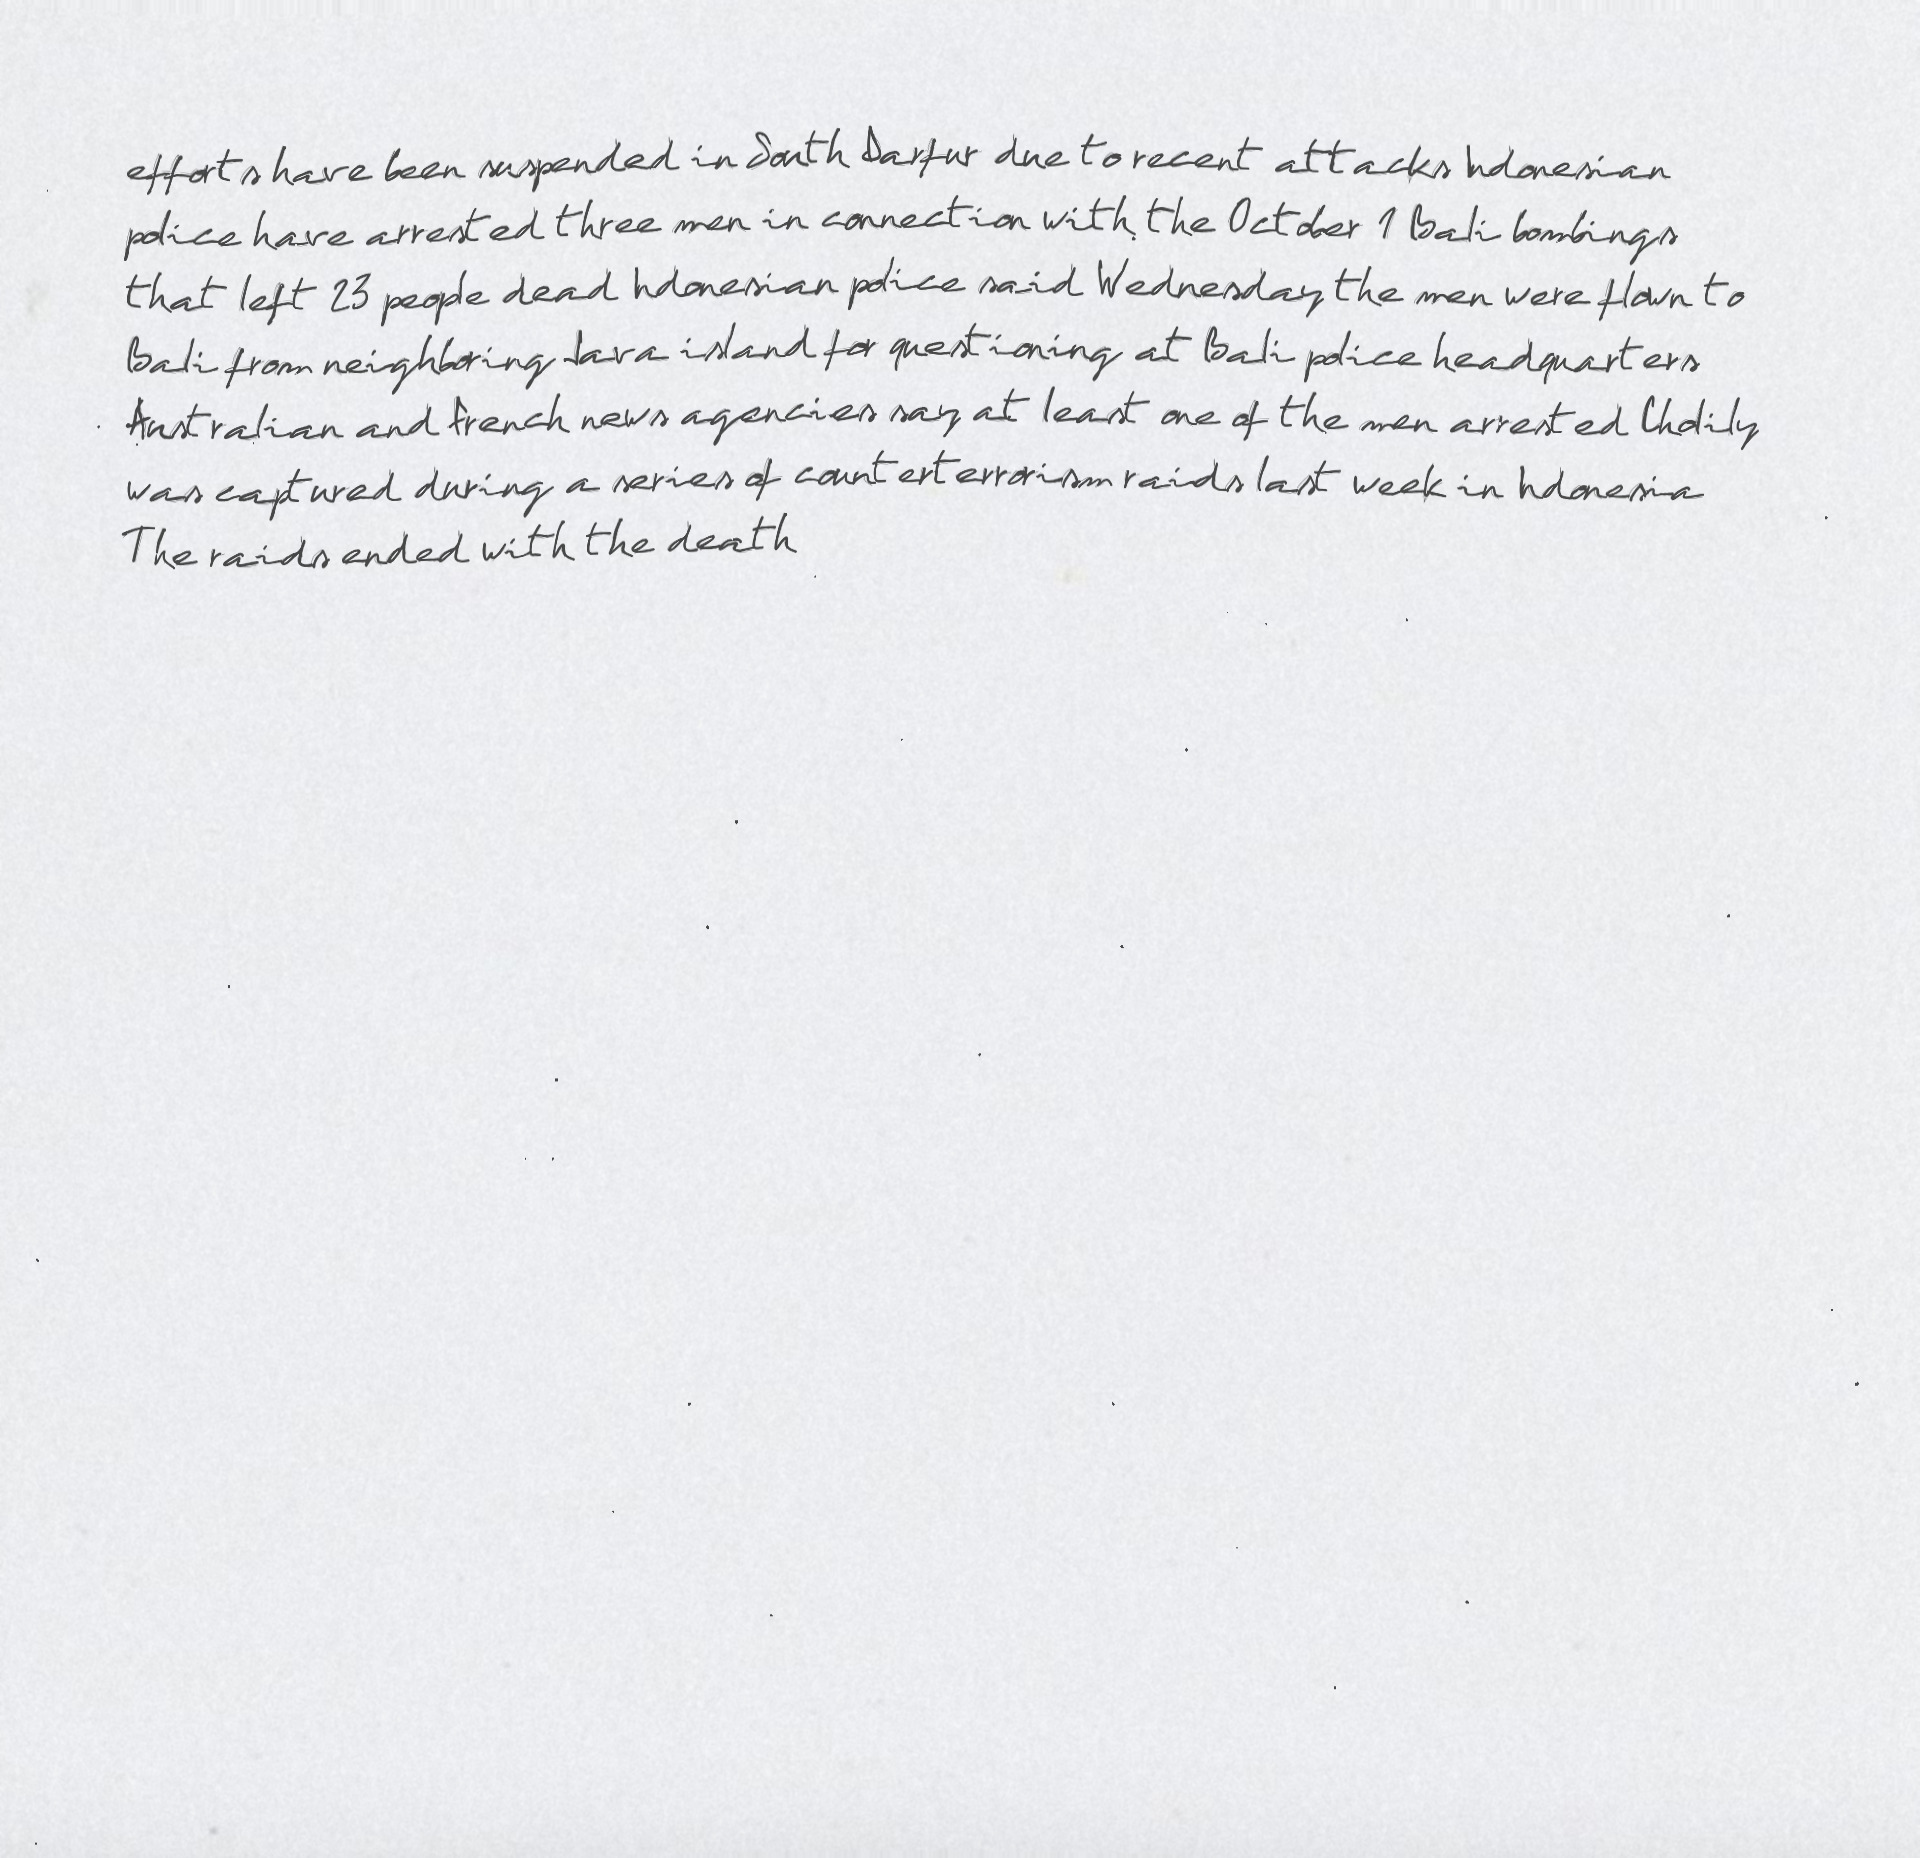 efforts have been suspended in South Darfur due to recent attacks Indonesian
police have arrested three men in connection with the October 1 Bali bombings
that left 23 people dead Indonesian police said Wednesday the men were flown to
Bali from neighboring Java island for questioning at Bali police headquarters
Australian and French news agencies say at least one of the men arrested Cholily
was captured during a series of counterterrorism raids last week in Indonesia
The raids ended with the death